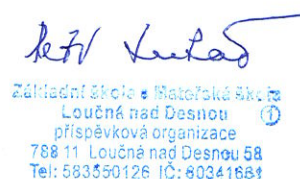 Petr Lukáš
Základní škola a Mateřská škola
Loučná nad Desnou ①
příspěvková organizace
788 11 Loučná nad Desnou 58
Tel: 583550126 IČ: 80341681